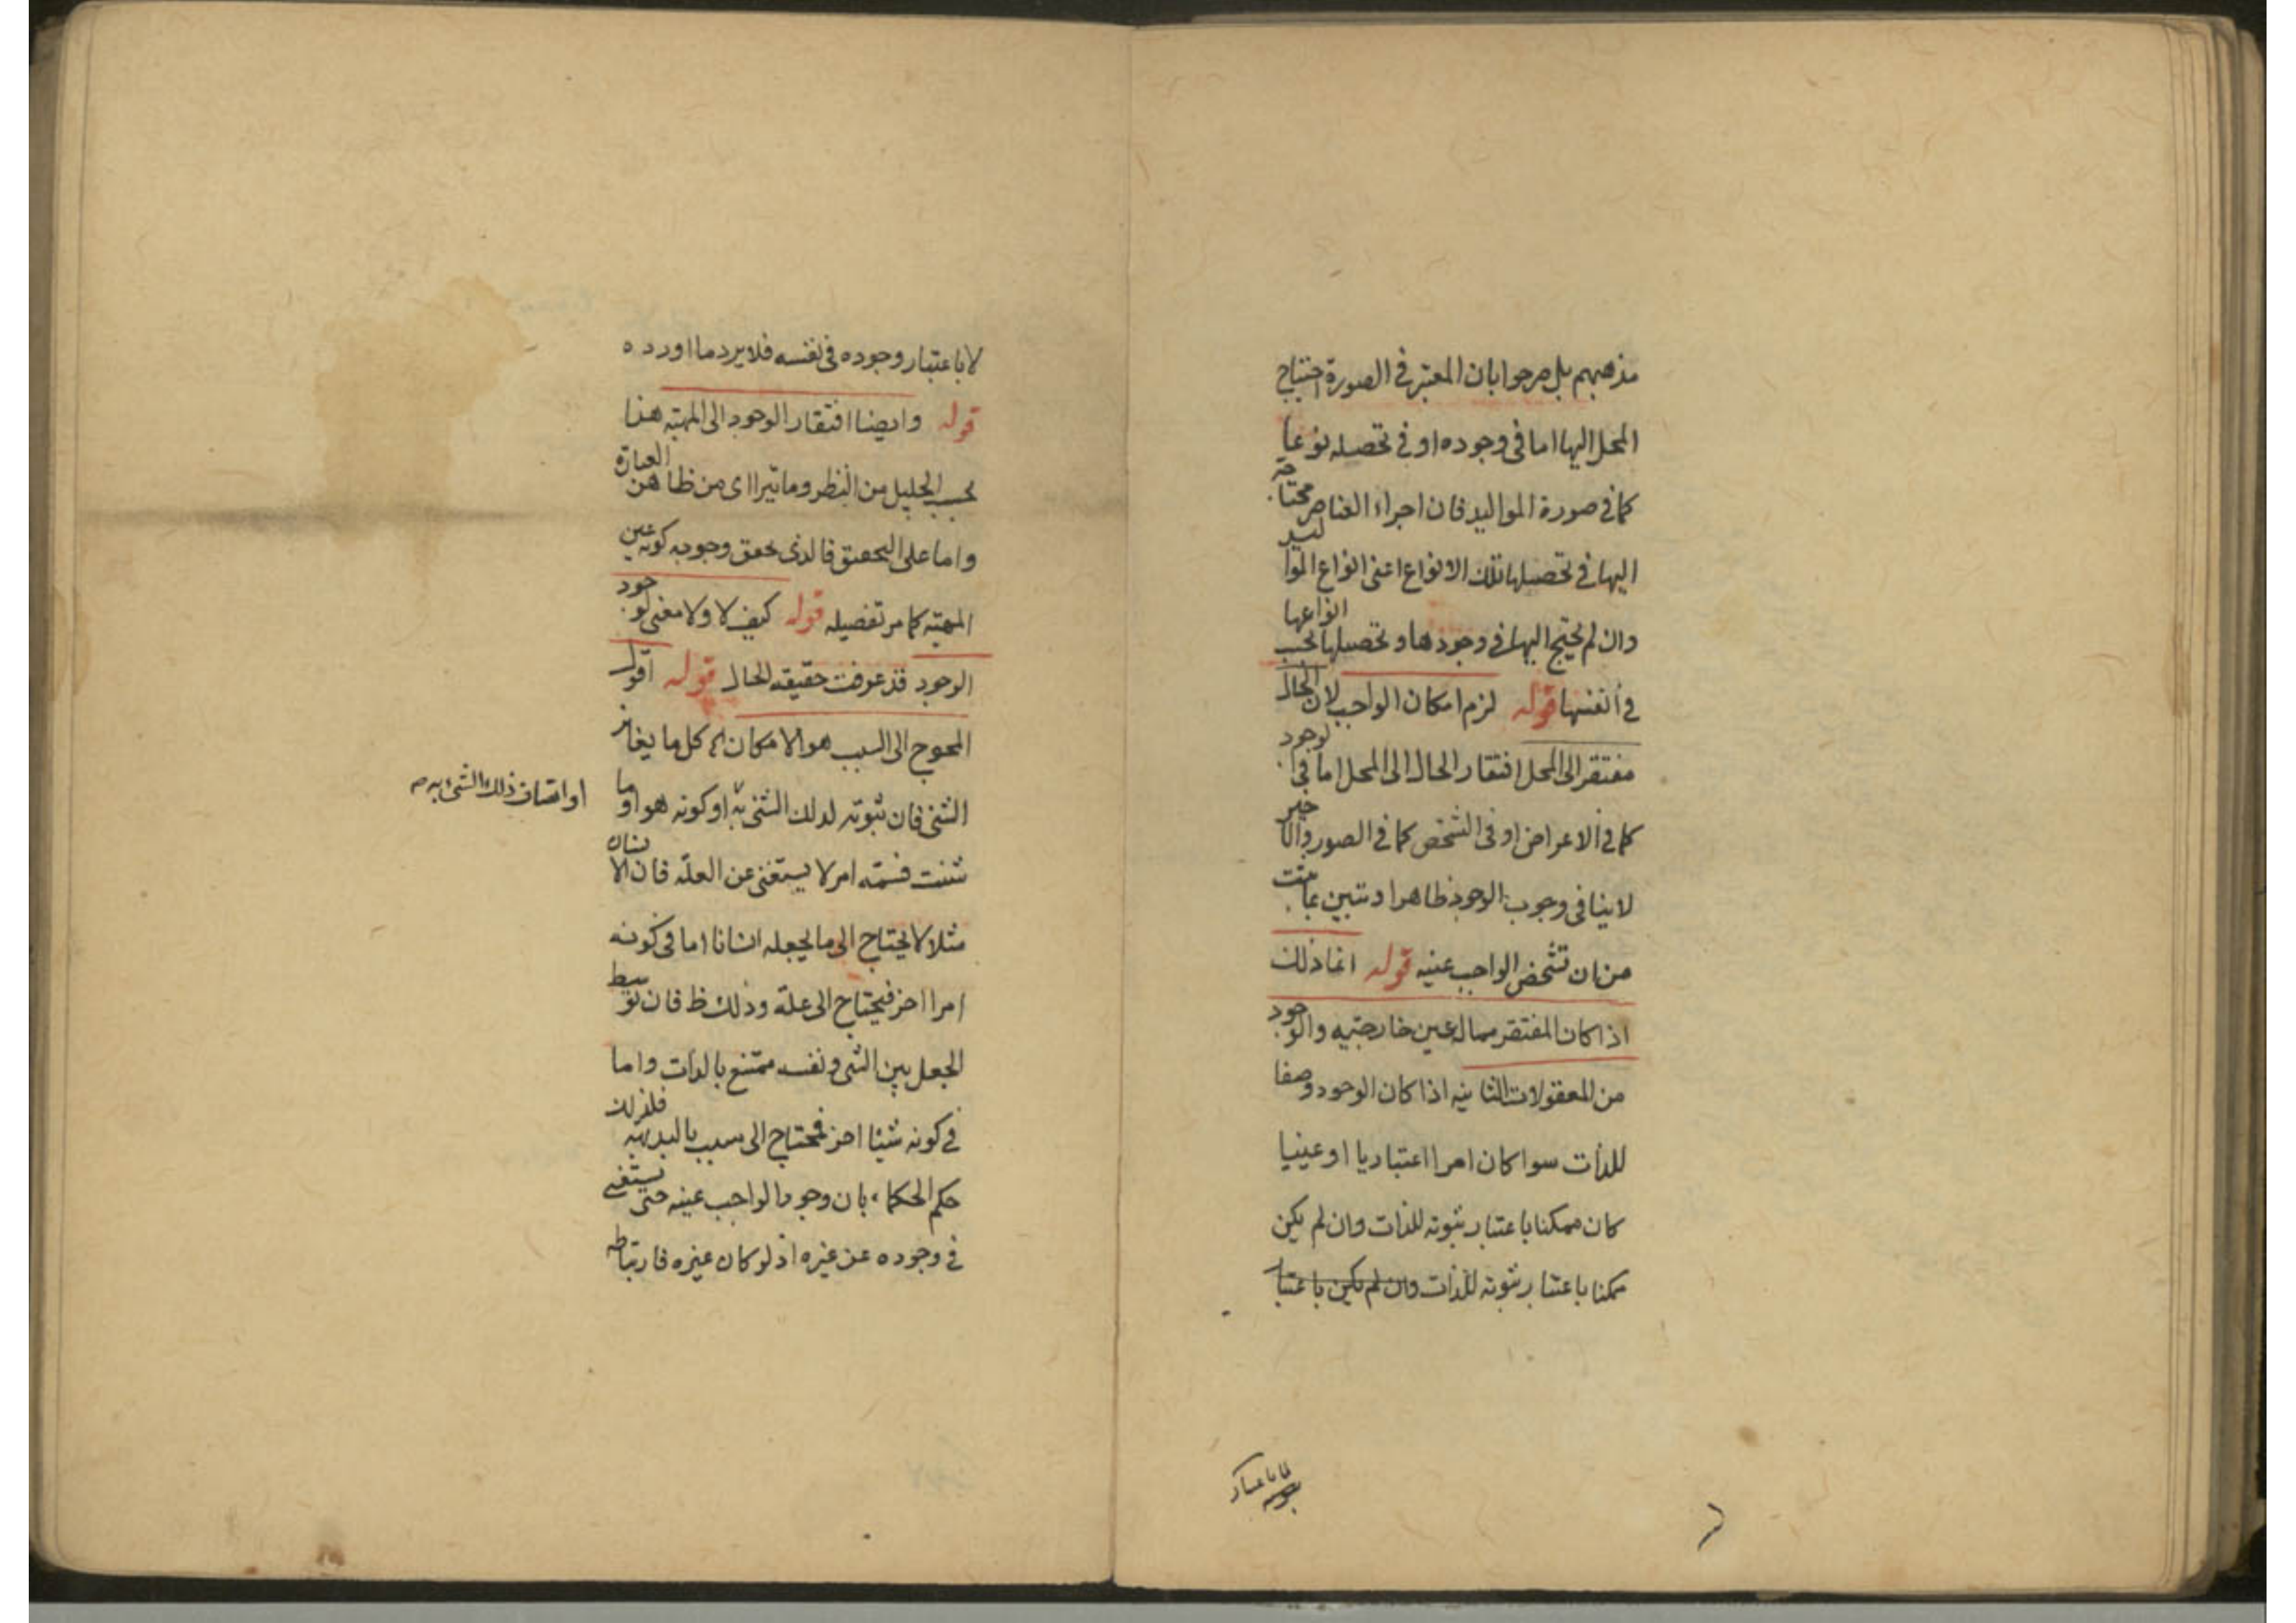 مذهبهم بل صرحوا بان المعتبر فى الصورة احتياج
المحل اليها اما فى وجوده او فى تحصله نوعا
كما فى صورة المواليد فان اجزاء العناصر محتاجة
اليها فى تحصلها تلك الانواع اعنى انواع المواليد
وان لم يحتج اليها فى وجودها وتحصلها بحسب انواعها
فى انفسها قوله لزم امكان الواجب لان الحال
مفتقر الى المحل افتقار الحال الى المحل اما فى الوجود
كما فى الاعراض او فى الشخص كما فى الصور والاخير
لاينافى وجوب الوجود ظاهرا وتبين بما يثبت
من ان تشخص الواجب عينه قوله انما ذلك
اذا كان المفتقر مما له عين خارجيه والوجود
من المعقولات الثانيه اذا كان الوجود وصفا
للذات سوا كان امرا اعتباريا او عينيا
كان ممكنا باعتبار ثبوته للذات وان لم يكن
ممكنا باعتبار ثبوته للذات وان لم يكن باعتبار
لاباعتبار
لا باعتبار وجوده فى نفسه فلا يرد ما اورده
قوله وايضا افتقار الوجود الى المهيه هذا
بحسب الجليل من النظر وما تيرااى من ظاهر العبارة
واما على التحقيق فالذى يحقق وجوبه كونه عين
المهيه كما مر تفصيله قوله كيف لا ولا معنى لوجود
الوجود قد عرفت حقيقه الحال قوله اقول
المحوج الى السبب هو الامكان لان كل ما يغاير
الشئ فان ثبوته لذلك الشئ او كونه هو او ما
او اتصاف ذلك الشئ به صح
شئت فسمه امر لا يستغنى عن العلة فان الانسان
مثلا لا يحتاج الى ما يجعله انسانا اما فى كونه
امرا اخر فيحتاج الى علة وذلك ظ فان توسط
الجعل بين الشئ ونفسه ممتنع بالذات واما
فى كونه شيئا اخر فمحتاج الى سبب بالبديهه فلذلك
حكم الحكماء بان وجود الواجب عينه حتى يستغنى
فى وجوده عن غيره اذ لو كان غيره فارتباطه